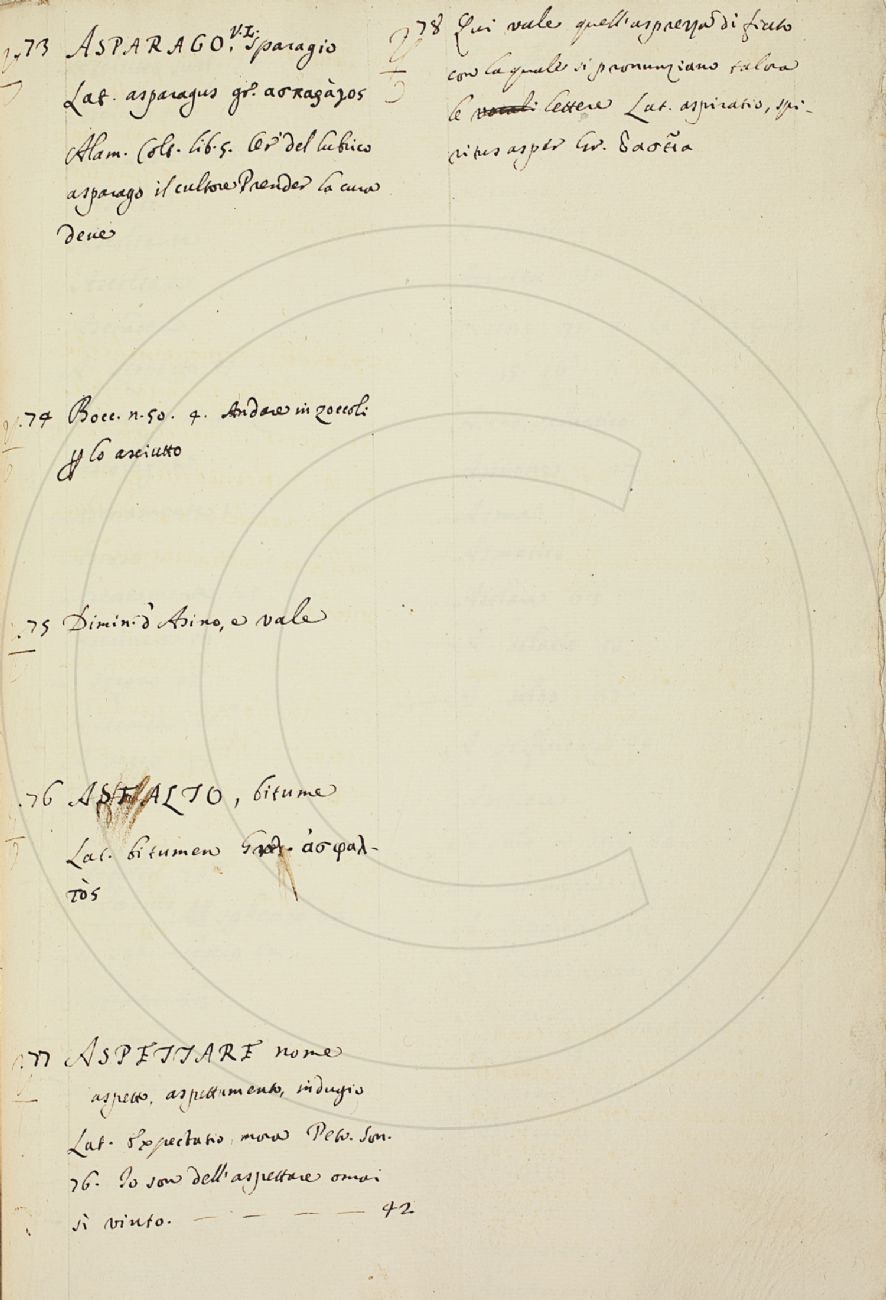 73 ASPARAGO. V. I. Sparagio
Lat. asparagus gr. ασπαράγος
Alam. Colt. lib. 5. Ver' del lubrico
asparago il cultore Prender la cura
deve
74 Bocc. n. 50. 4. Andare in zoccoli
ꝑ lo asciutto
75 Dimin. d' Asino, e vale
76 ASFALTO, bitume
Lat. bitumen Gr. ἀσφαλ-
τὸς
77 ASPETTARE nome
aspetto, aspettamento, indugio
Lat. Expectatio, mora Petr. son.
76. Io son dell'aspettare omai
sì vinto. — — — — 42
78 Qui vale quell'asprezza di fiato
con la quale si pronunziano talora
le vocali lettere Lat. aspiratio, spi-
ritus asper Gr. δασεῖα